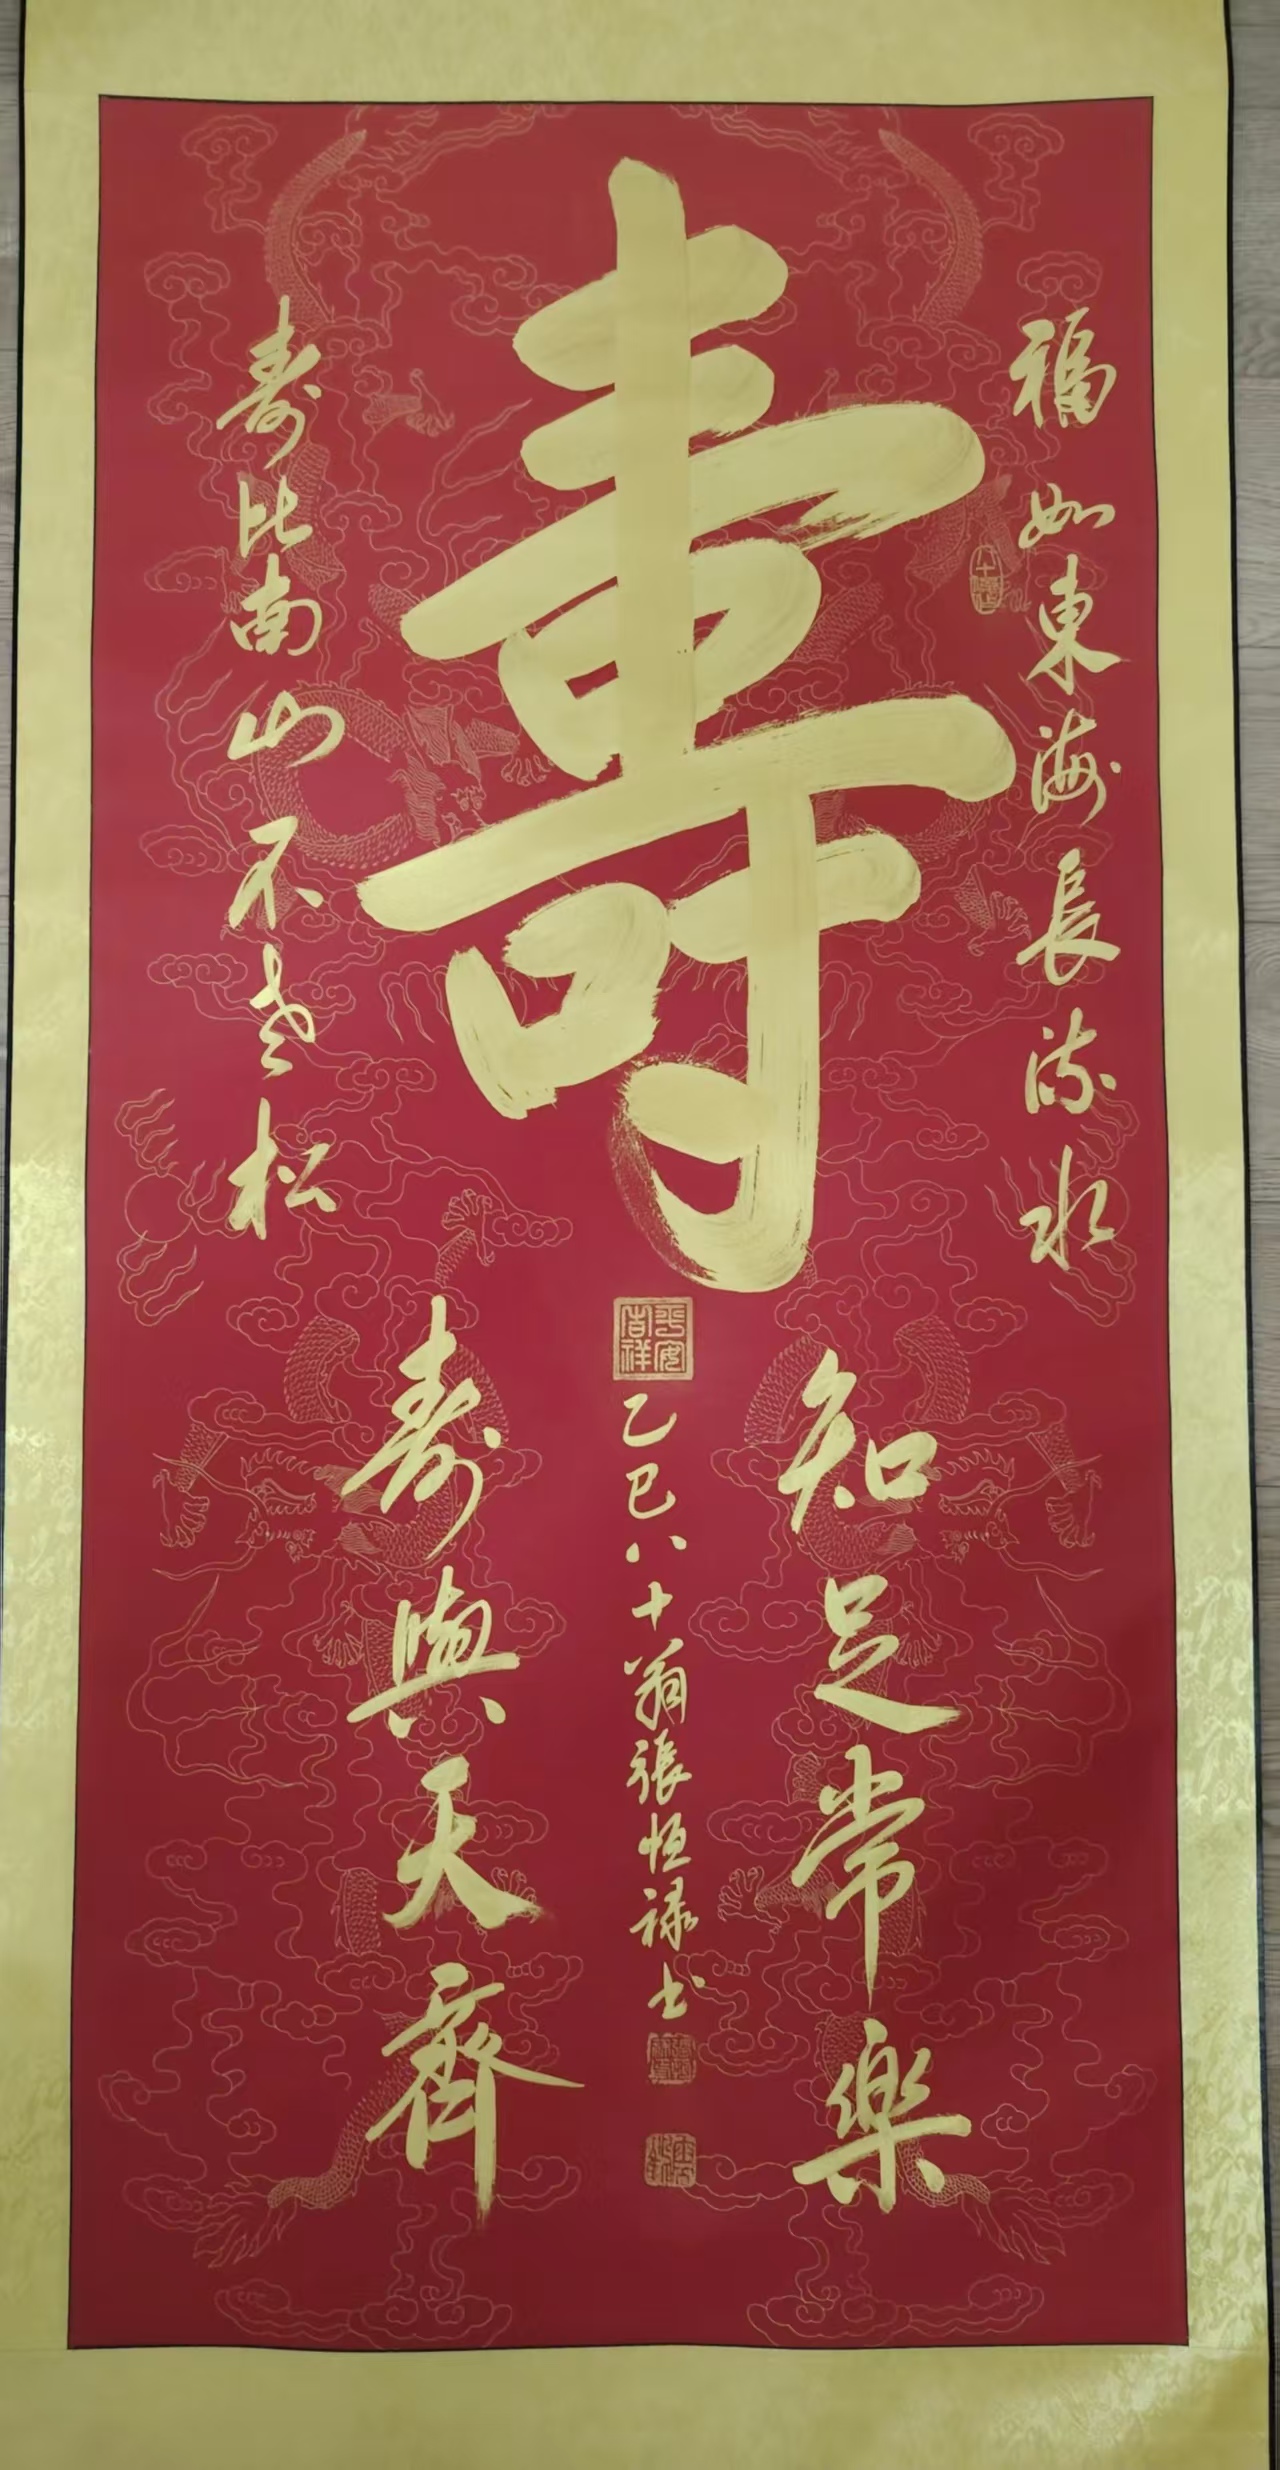 壽
福如東海長流水
壽比南山不老松
知足常樂
壽與天齊
平安吉祥
乙巳八十翁張恒祿书